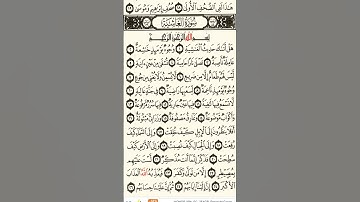 هَٰذَا لَفِي الصُّحُفِ الْأُولَىٰ ۝ صُحُفِ إِبْرَاهِيمَ وَمُوسَىٰ ۝
سُورَةُ الْغَاشِيَةِ
بِسْمِ اللَّهِ الرَّحْمَٰنِ الرَّحِيمِ
هَلْ أَتَاكَ حَدِيثُ الْغَاشِيَةِ ۝ وُجُوهٌ يَوْمَئِذٍ خَاشِعَةٌ ۝
عَامِلَةٌ نَاصِبَةٌ ۝ تَصْلَىٰ نَارًا حَامِيَةً ۝ تُسْقَىٰ مِنْ عَيْنٍ آنِيَةٍ ۝
لَيْسَ لَهُمْ طَعَامٌ إِلَّا مِنْ ضَرِيعٍ ۝ لَا يُسْمِنُ وَلَا يُغْنِي مِنْ جُوعٍ
۝ وُجُوهٌ يَوْمَئِذٍ نَاعِمَةٌ ۝ لِسَعْيِهَا رَاضِيَةٌ ۝ فِي جَنَّةٍ عَالِيَةٍ ۝
لَا تَسْمَعُ فِيهَا لَاغِيَةً ۝ فِيهَا عَيْنٌ جَارِيَةٌ ۝ فِيهَا سُرُرٌ مَرْفُوعَةٌ ۝
وَأَكْوَابٌ مَوْضُوعَةٌ ۝ وَنَمَارِقُ مَصْفُوفَةٌ ۝ وَزَرَابِيُّ مَبْثُوثَةٌ ۝
أَفَلَا يَنْظُرُونَ إِلَى الْإِبِلِ كَيْفَ خُلِقَتْ ۝ وَإِلَى السَّمَاءِ كَيْفَ
رُفِعَتْ ۝ وَإِلَى الْجِبَالِ كَيْفَ نُصِبَتْ ۝ وَإِلَى الْأَرْضِ كَيْفَ
سُطِحَتْ ۝ فَذَكِّرْ إِنَّمَا أَنْتَ مُذَكِّرٌ ۝ لَسْتَ عَلَيْهِمْ
بِمُصَيْطِرٍ ۝ إِلَّا مَنْ تَوَلَّىٰ وَكَفَرَ ۝ فَيُعَذِّبُهُ اللَّهُ الْعَذَابَ
الْأَكْبَرَ ۝ إِنَّ إِلَيْنَا إِيَابَهُمْ ۝ ثُمَّ إِنَّ عَلَيْنَا حِسَابَهُمْ ۝